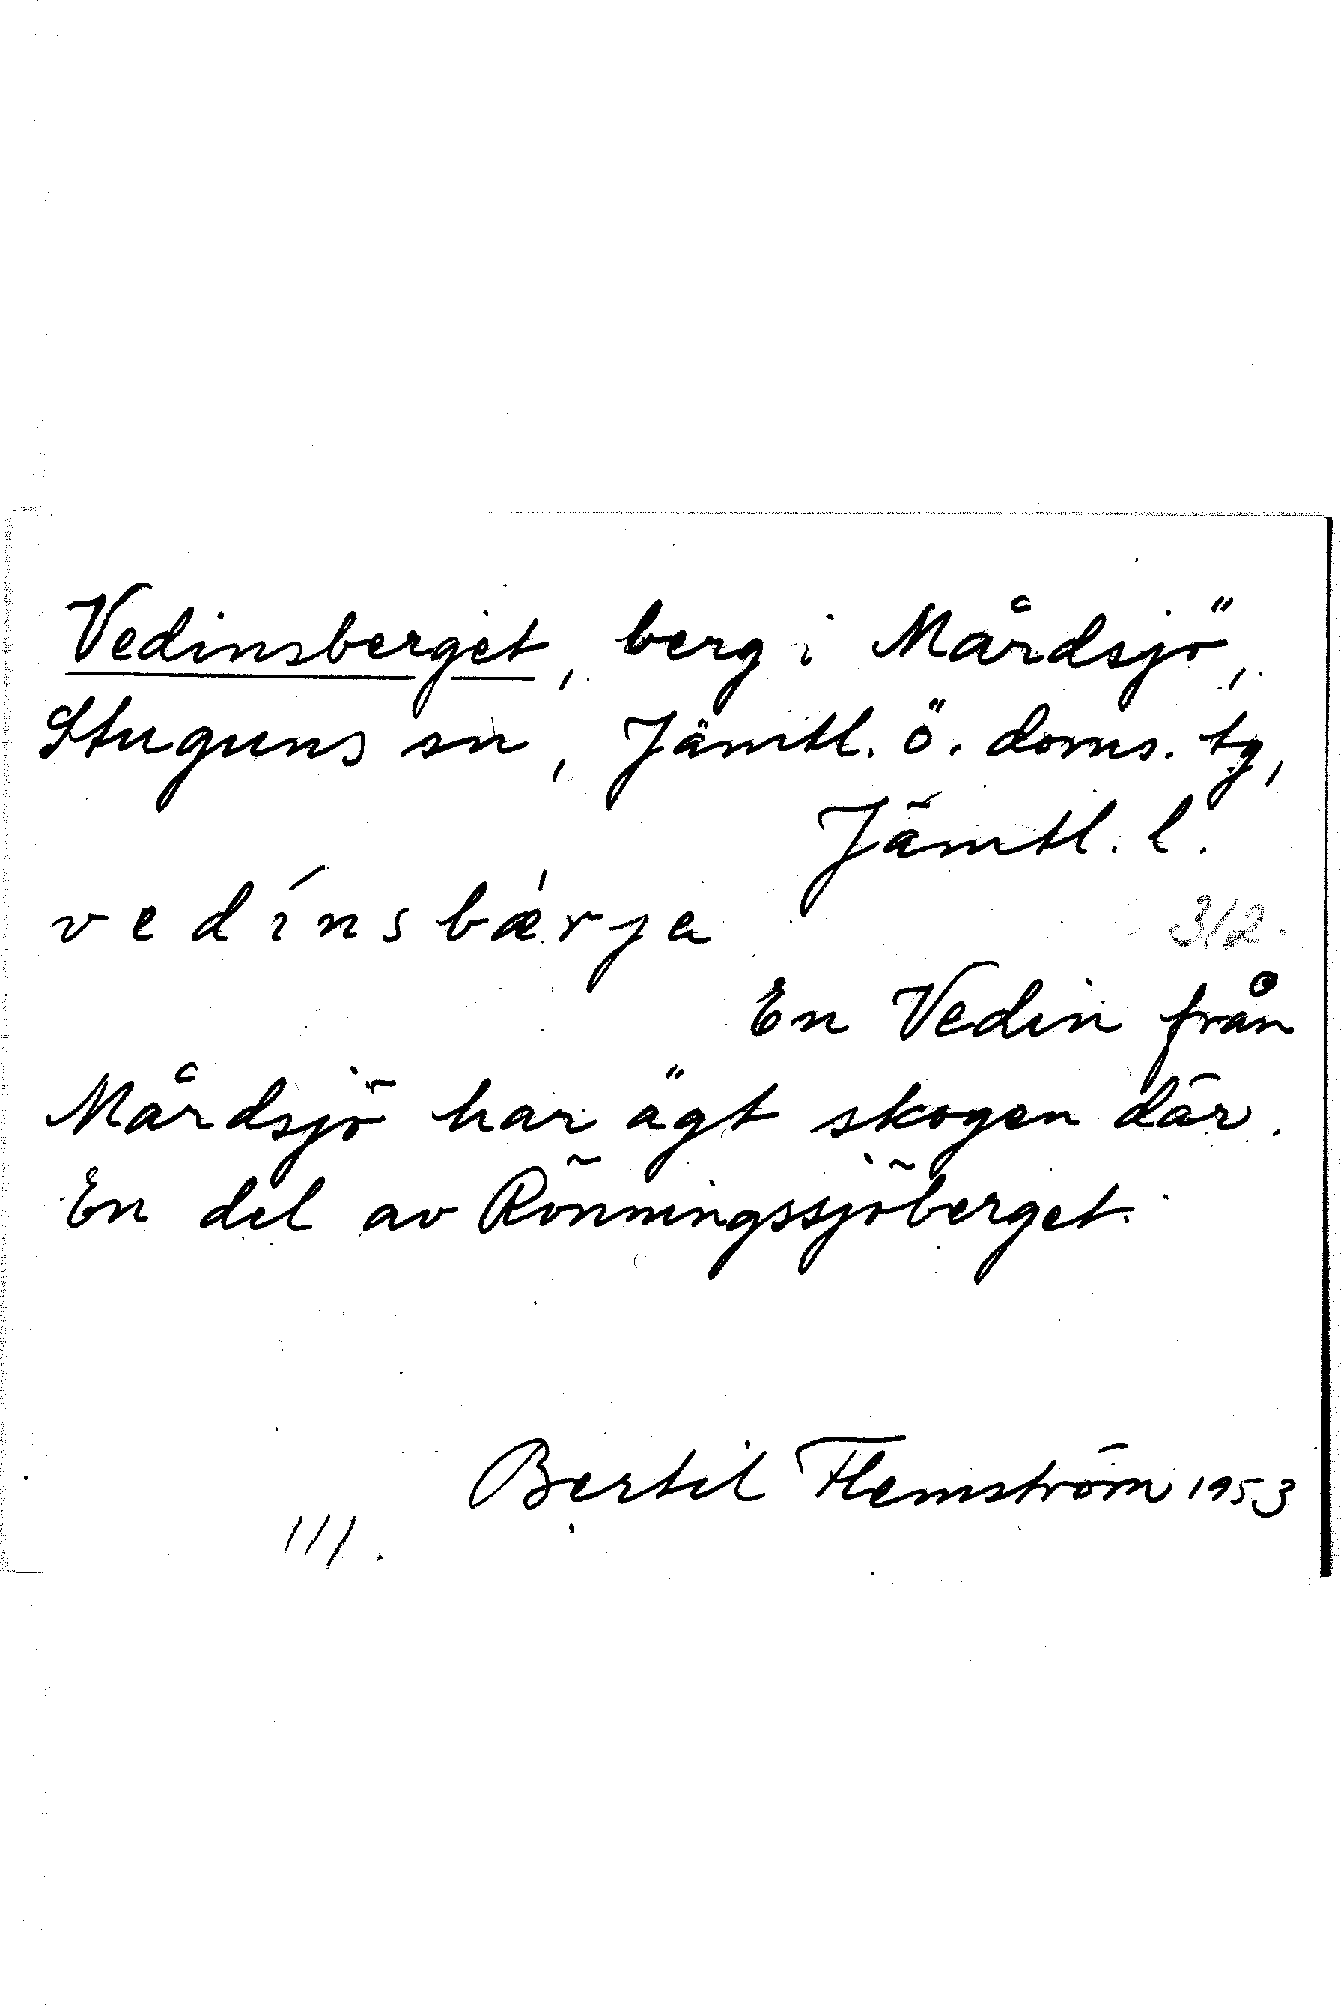 Vedinsberget, berg i Mårdsjö,
Stuguns sn, Jämtl. ö. doms. tg,
Jämtl. l.
vedínsbǽrja
312.
En Vedin från
Mårdsjö har ägt skogen där.
En del av Rönningssjöberget.
Bertil Flemström 1953
111.